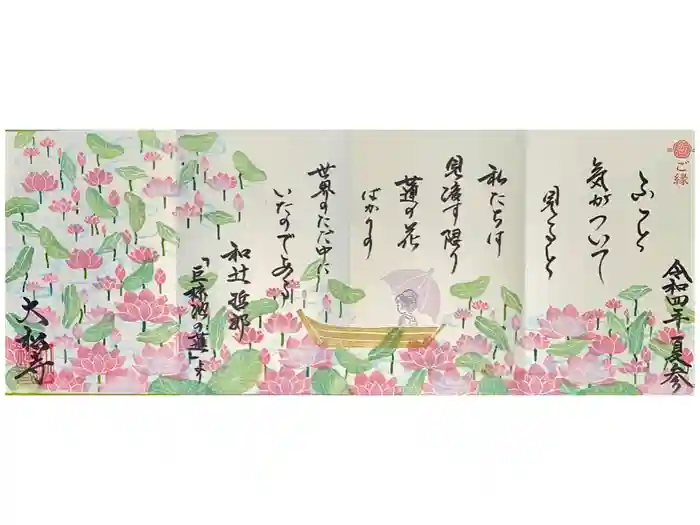 ご縁
令和四年夏参
ふと
気がついて
見ると
私たちは
見渡す限り
蓮の花
ばかりの
世界のただ中に
いたのである
和辻哲郎
「巨椋池の蓮」より
大福寺